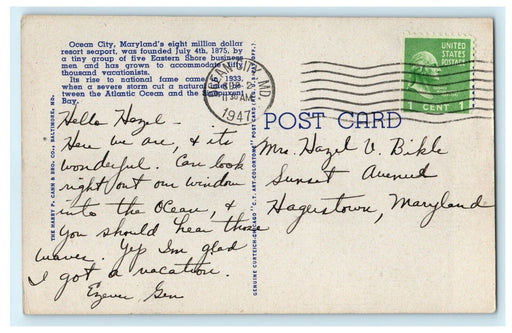 Ocean City, Maryland's eight million dollar
resort seaport, was founded July 4th, 1875, by
a tiny group of five Eastern Shore business
men and has grown to accommodate fifty
thousand vacationists.
Its rise to national fame came in 1933,
when a severe storm cut a natural inlet be-
tween the Atlantic Ocean and the Sinepuxent
Bay.
OCEAN CITY, MD.
SEP 2
11 30 AM
1947
UNITED
STATES
POSTAGE
1 CENT 1
POST CARD
THE HARRY P. CANN & BRO. CO., BALTIMORE, MD.
GENUINE CURTEICH-CHICAGO "C.T. ART-COLORTONE" POST CARD
Hello Hazel -
Here we are, & its
wonderful. Can look
right out our window
into the Ocean, &
you should hear those
waves. Yep I'm glad
I got a vacation.
Gen
Mrs. Hazel V. Bikle
Sunset Avenue
Hagerstown, Maryland